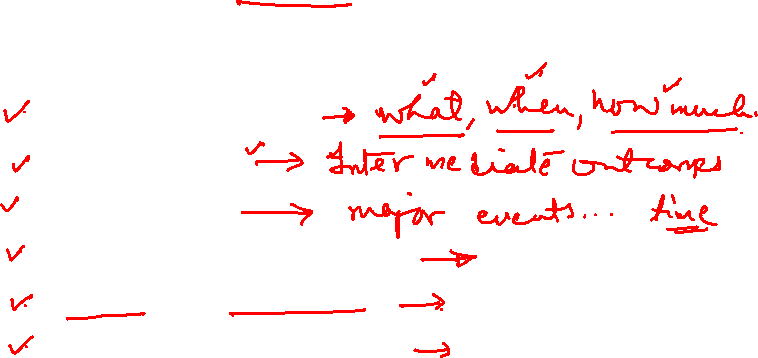 → what, when, how much.
→ Intermediate outcomes
→ major events... time